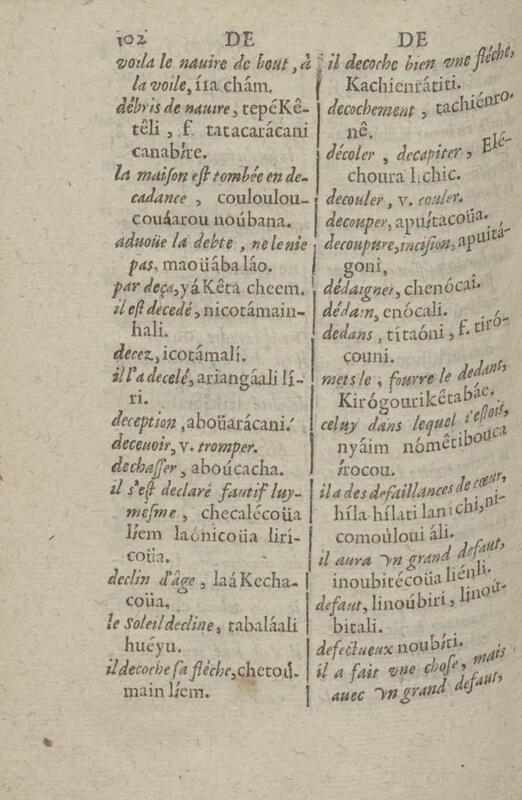 102 DE DE
voila le nauire de bout, à
la voile, íra chám.
débris de nauire, tepéKê-
têli, f. tatacarácani
canabíre.
la maiſon eſt tombée en de-
cadance, couloulou-
couáarou noúbana.
aduoüe la debte, ne le nie
pas, maoüába láo.
par deça, yáKêta cheem.
il eſt decedé, nicotámain-
hali.
decez, icotámalí.
il l'a decelé, ariangáali lí-
ri.
deception, aboüarácani.
deceuoir, v. tromper.
dechaſſer, aboúcacha.
il s'eſt declaré fautif luy-
meſme, checalécoüa
líem laónicoüa lirí-
coüa.
declin d'âge, laáKecha-
coüa.
le Soleil decline, tabaláali
huéyu.
il decoche ſa flêche, chetoú-
main líem.
il decoche bien vne fléche,
Kachienrátiti.
decochement, tachiénro-
nê.
décoler, decapiter, Elé-
choura lichic.
decouler, v. couler.
decouper, apuítacoüa.
decoupure, inciſion, apuitá-
goni,
dédaigner, chenócai.
dédain, enócali.
dedans, títaóni, f. tiró-
couni.
mets le, fourre le dedans,
Kirógourikêtabác.
celuy dans lequel i'eſtois,
nyáim nómêtibouca
írocou.
il a des defaillances de cœur,
híla hílati lanichí, ni-
comoúloui áli.
il aura vn grand defaut,
inoubitécoüa liénli.
defaut, linoúbiri, linoú-
bitali.
defectueux noubíti.
il a fait vne choſe, mais
auec vn grand defaut,